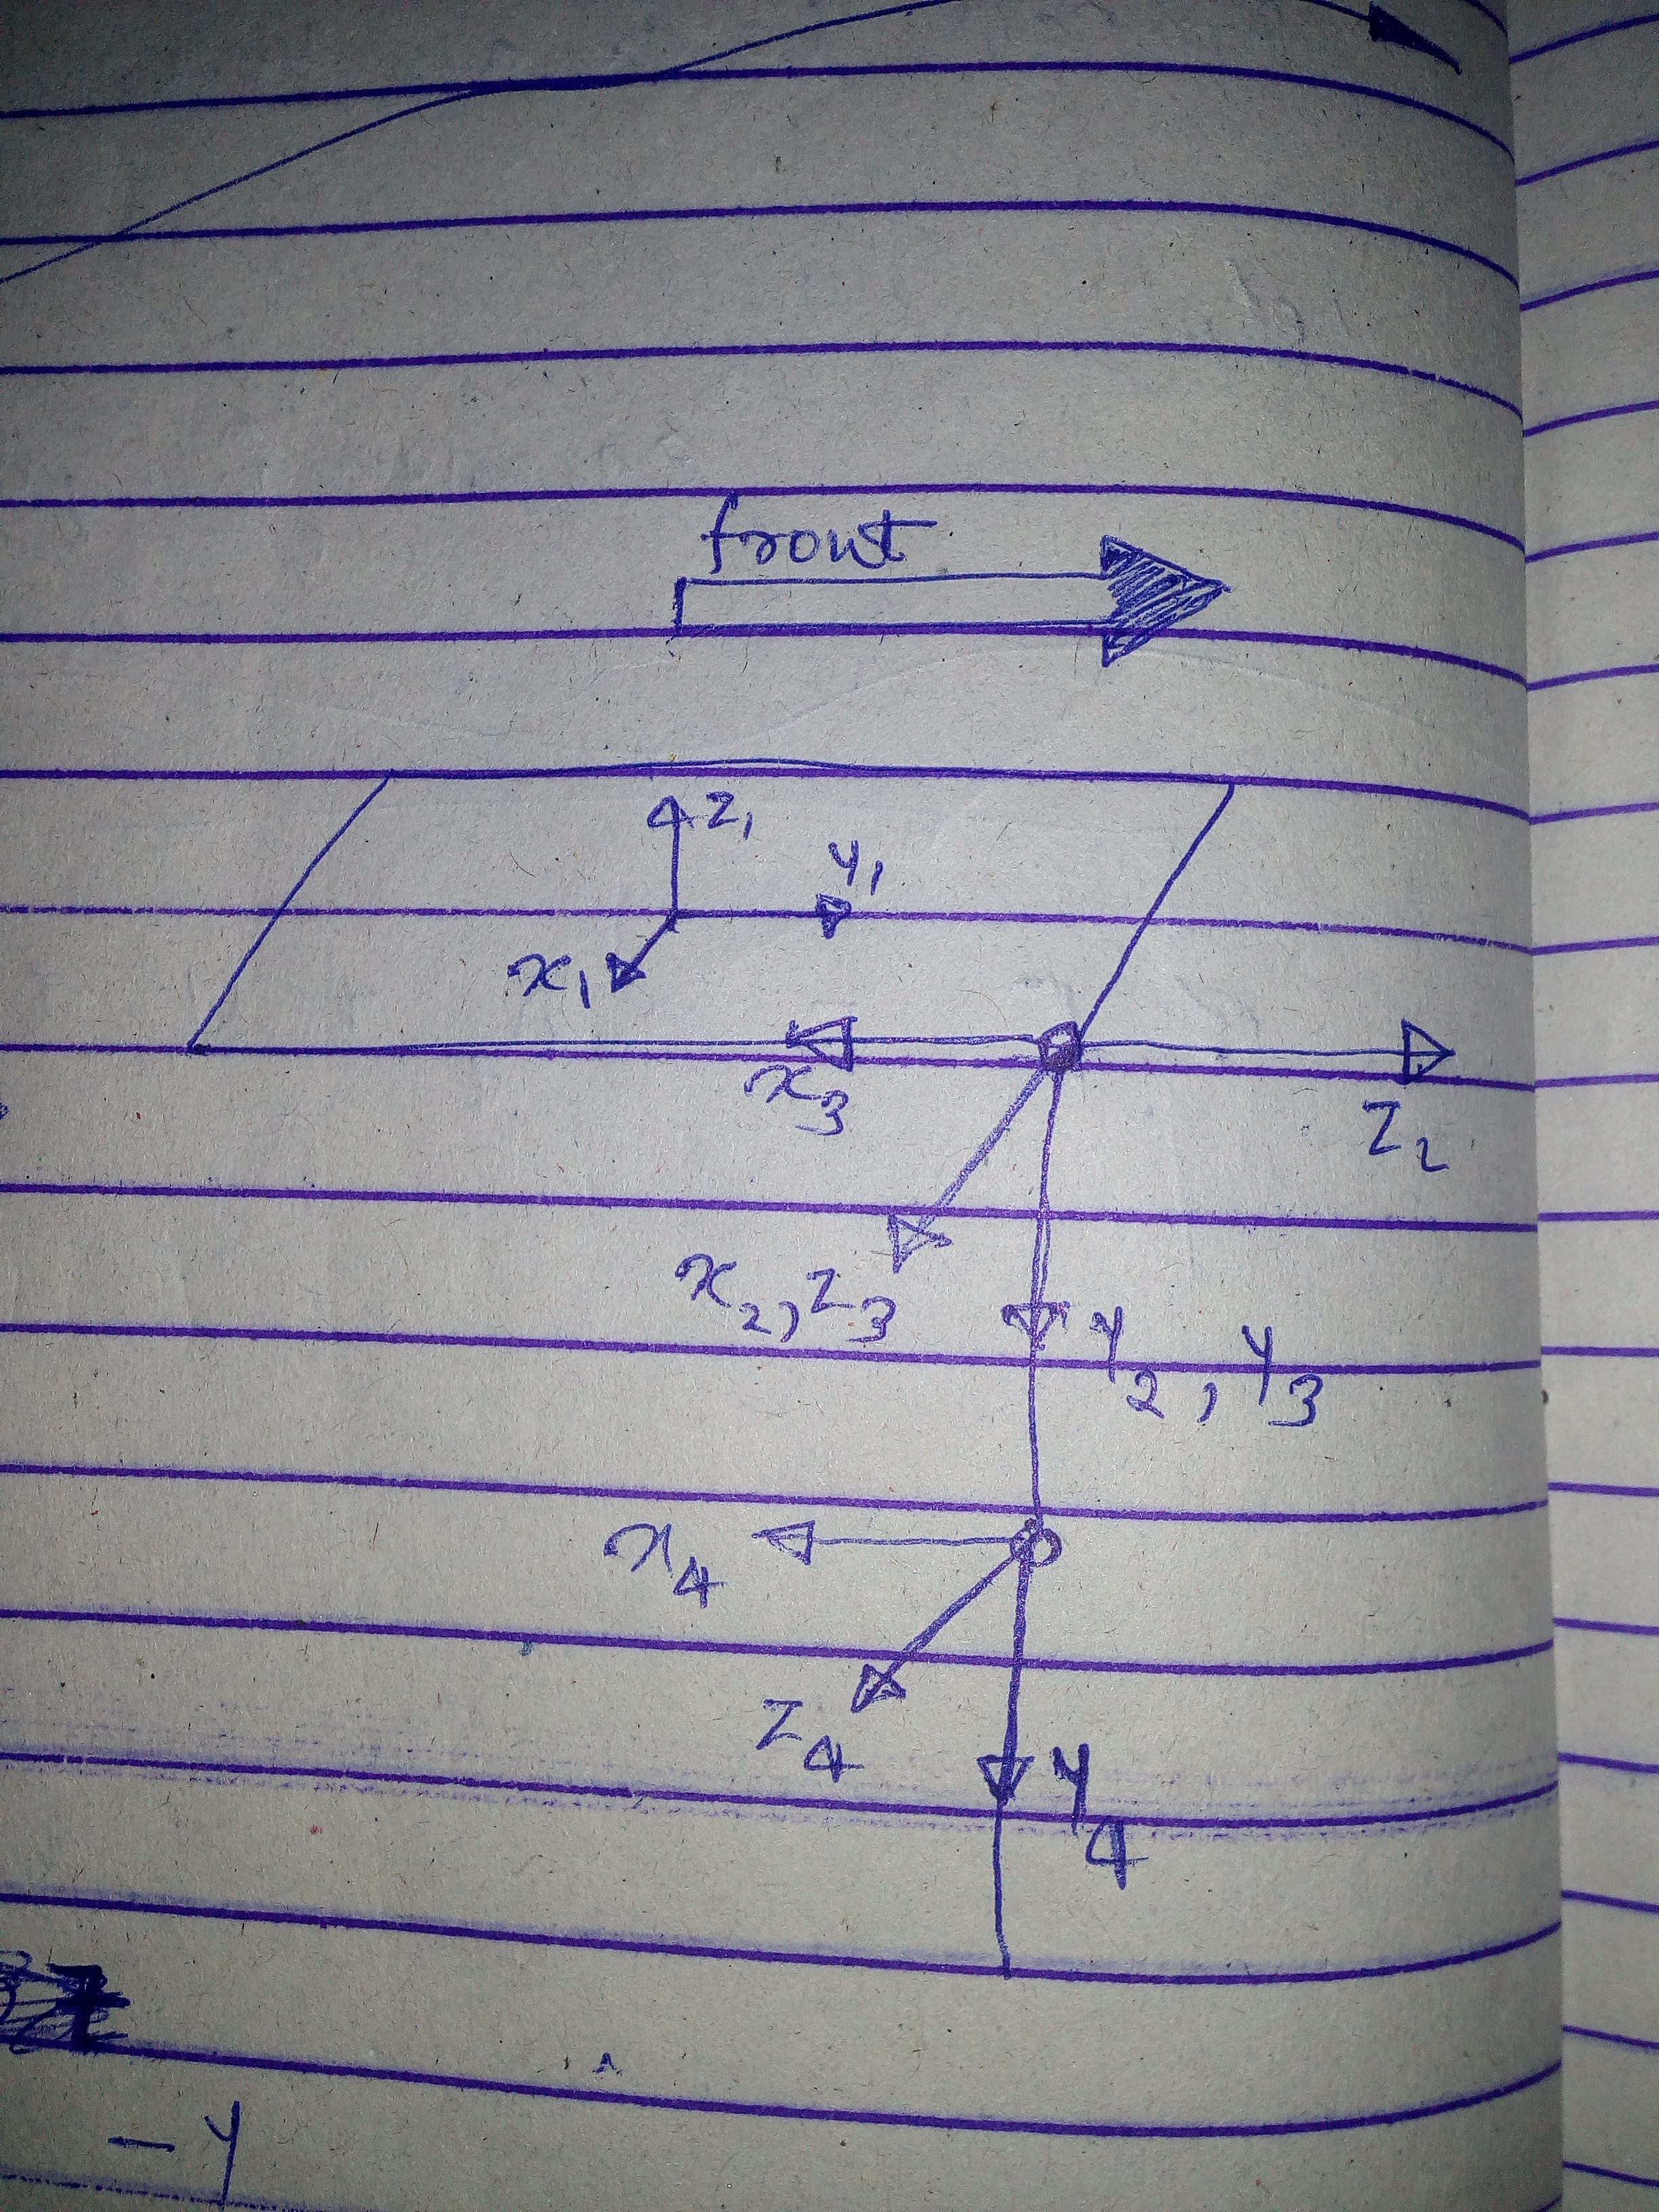 front
z₁
y₁
x₁
x₃
z₂
x₂, z₃
y₂, y₃
x₄
z₄
y₄
-y